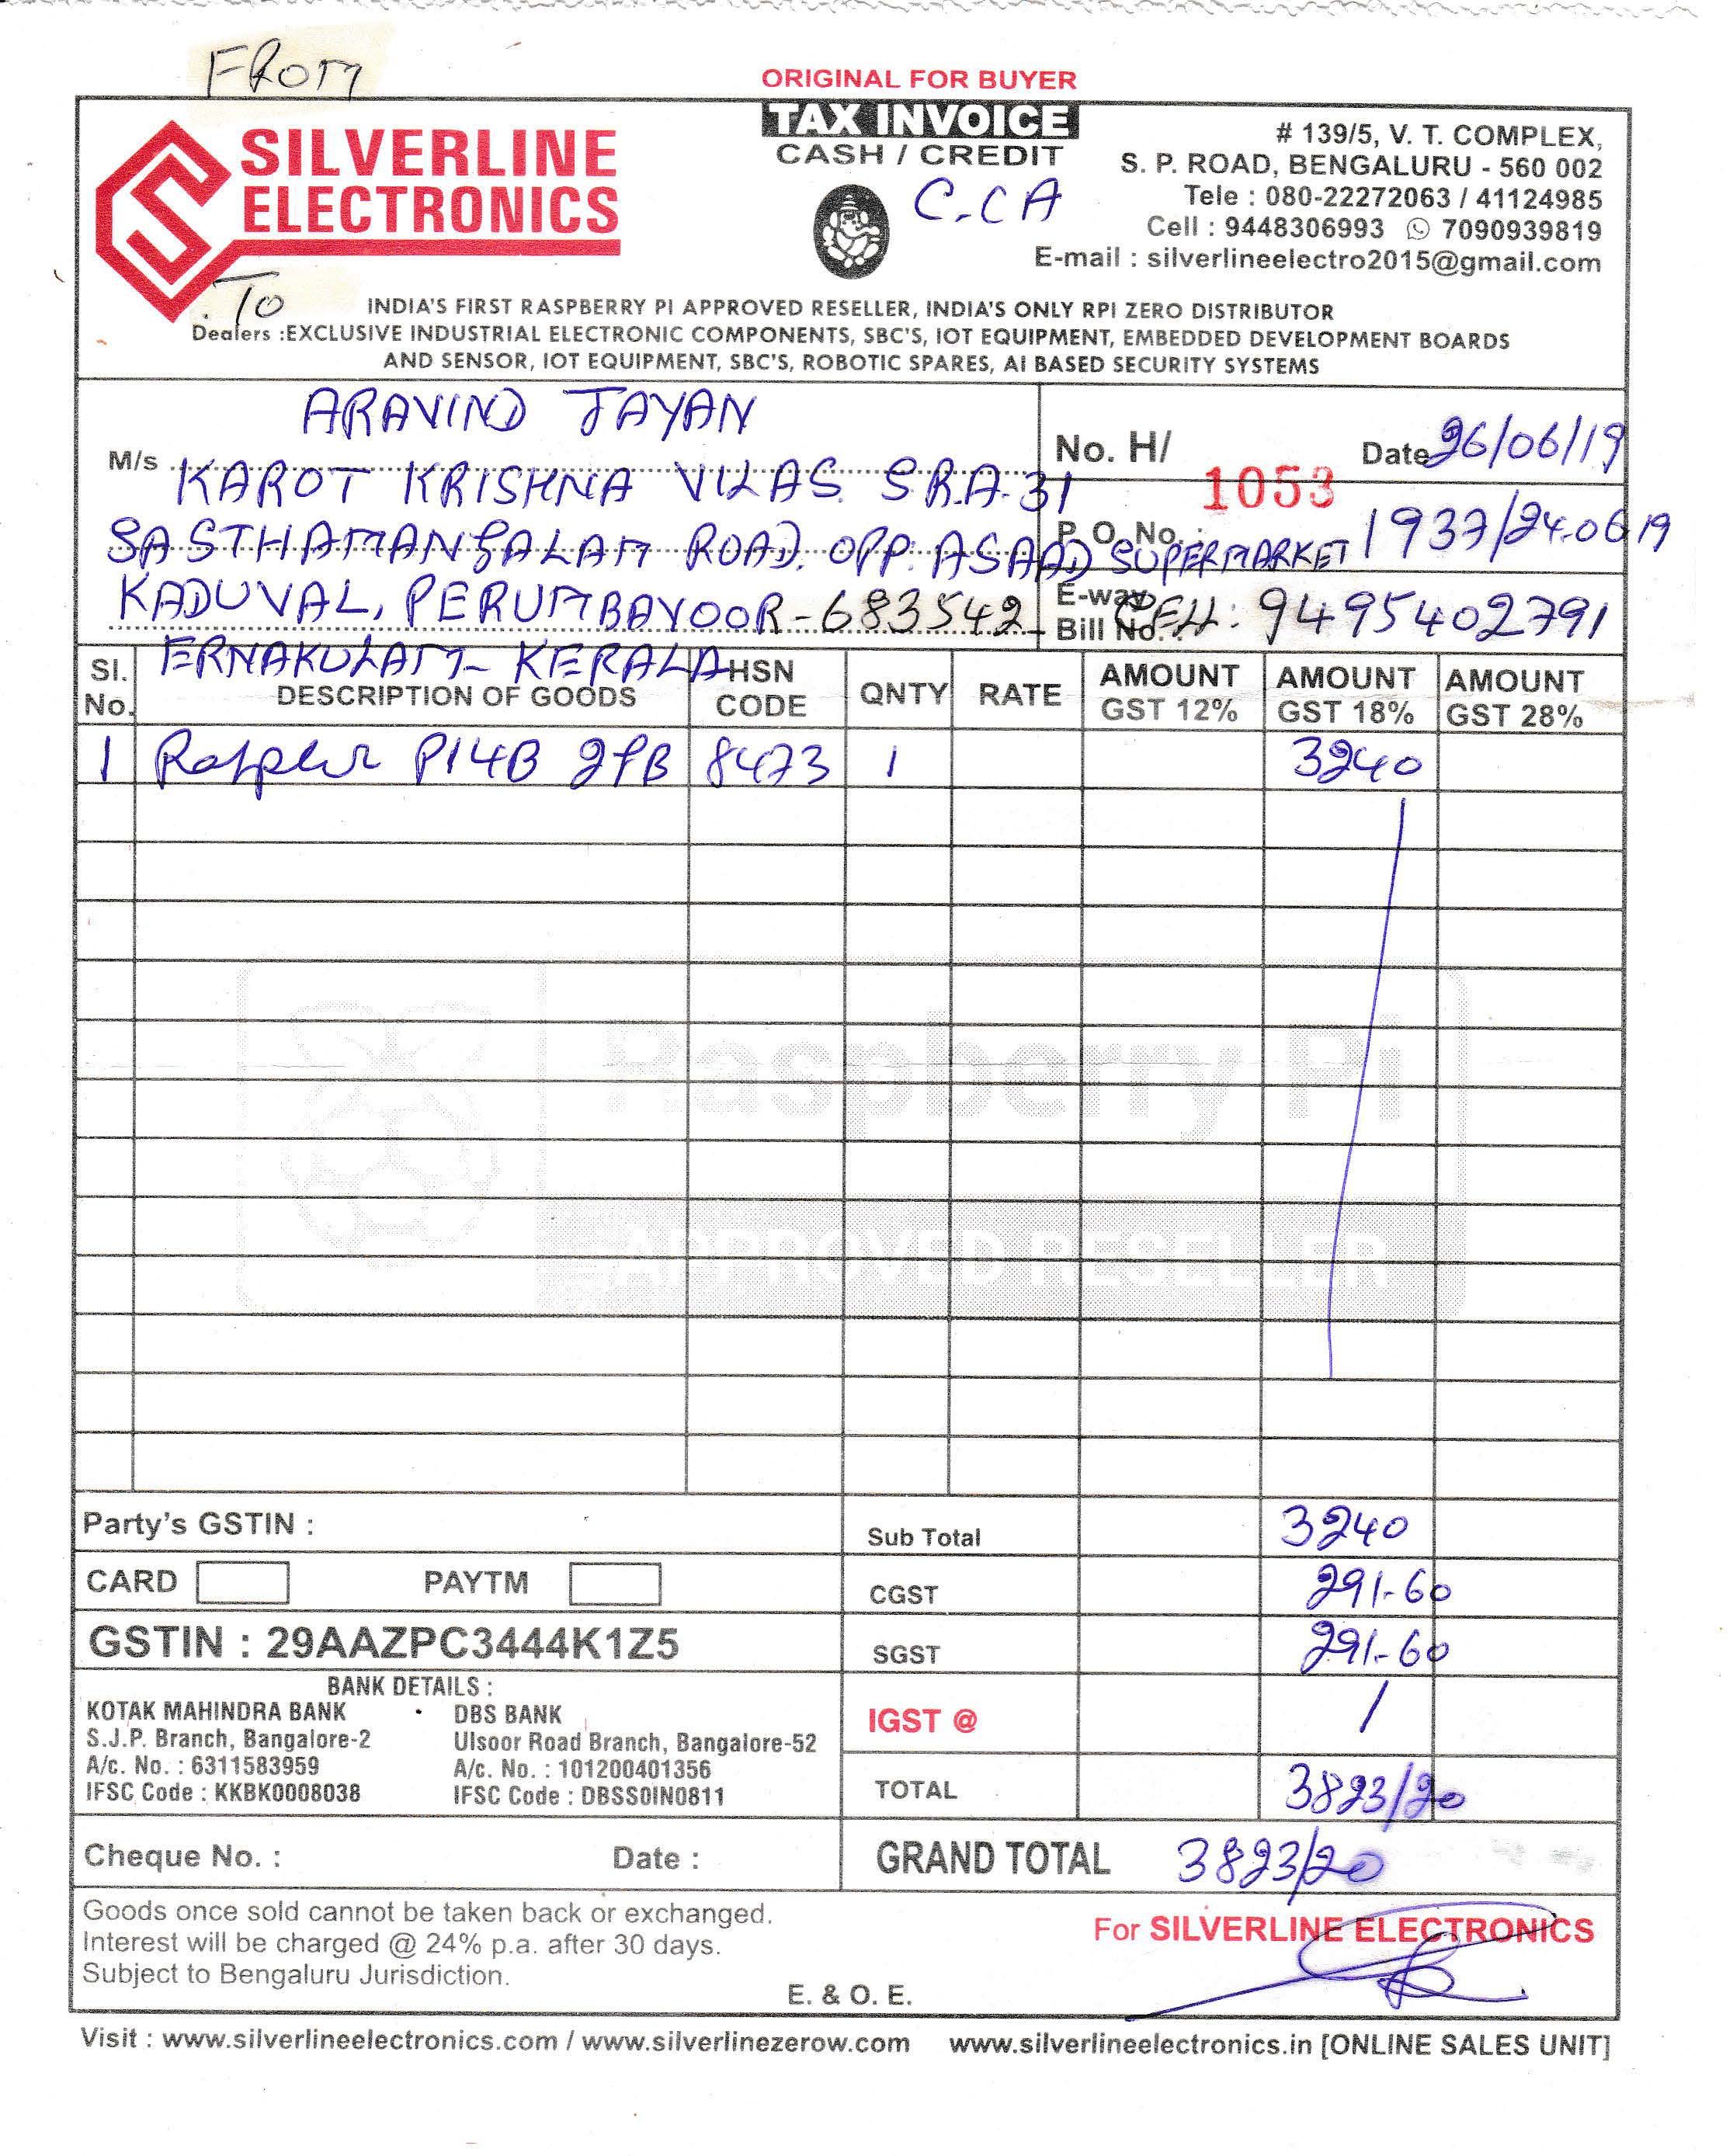 FROM
ORIGINAL FOR BUYER
TAX INVOICE
CASH / CREDIT
C.CA
SILVERLINE
ELECTRONICS
# 139/5, V. T. COMPLEX,
S. P. ROAD, BENGALURU - 560 002
Tele : 080-22272063 / 41124985
Cell : 9448306993 7090939819
E-mail : silverlineelectro2015@gmail.com
To
INDIA'S FIRST RASPBERRY PI APPROVED RESELLER, INDIA'S ONLY RPI ZERO DISTRIBUTOR
Dealers :EXCLUSIVE INDUSTRIAL ELECTRONIC COMPONENTS, SBC'S, IOT EQUIPMENT, EMBEDDED DEVELOPMENT BOARDS
AND SENSOR, IOT EQUIPMENT, SBC'S, ROBOTIC SPARES, AI BASED SECURITY SYSTEMS
ARAVIND JAYAN
M/s KAROT KRISHNA VILAS S.R.A-31
SASTHAMANGALAM ROAD. OPP. ASAAD SUPERMARKET
KADUVAL, PERUMBAVOOR-683542
ERNAKULAM- KERALA
No. H/ 1053 Date 26/06/19
P. O. No. : 1937/24.06.19
E-way Bill No. CELL: 9495402791
Sl. No. DESCRIPTION OF GOODS HSN CODE QNTY RATE AMOUNT GST 12% AMOUNT GST 18% AMOUNT GST 28%
1 PI4B 2GB 8473 1 3240
Raspberry Pi
APPROVED RESELLER
Party's GSTIN :
Sub Total 3240
CARD PAYTM
CGST 291-60
GSTIN : 29AAZPC3444K1Z5
SGST 291-60
BANK DETAILS :
KOTAK MAHINDRA BANK
S.J.P. Branch, Bangalore-2
A/c. No. : 6311583959
IFSC Code : KKBK0008038
DBS BANK
Ulsoor Road Branch, Bangalore-52
A/c. No. : 101200401356
IFSC Code : DBSS0IN0811
IGST @ /
TOTAL 3823/20
Cheque No. : Date :
GRAND TOTAL 3823/20
Goods once sold cannot be taken back or exchanged.
Interest will be charged @ 24% p.a. after 30 days.
Subject to Bengaluru Jurisdiction.
E. & O. E.
For SILVERLINE ELECTRONICS
Visit : www.silverlineelectronics.com / www.silverlinezerow.com www.silverlineelectronics.in [ONLINE SALES UNIT]